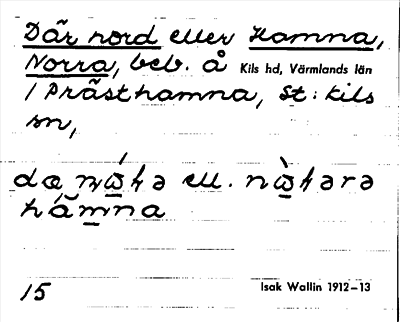 Där nord eller Hamna,
Norra, beb. å Kils hd, Värmlands län
/ Prästhamna, St: Kils
sn,
ell.
hámna
15 Isak Wallin 1912–13